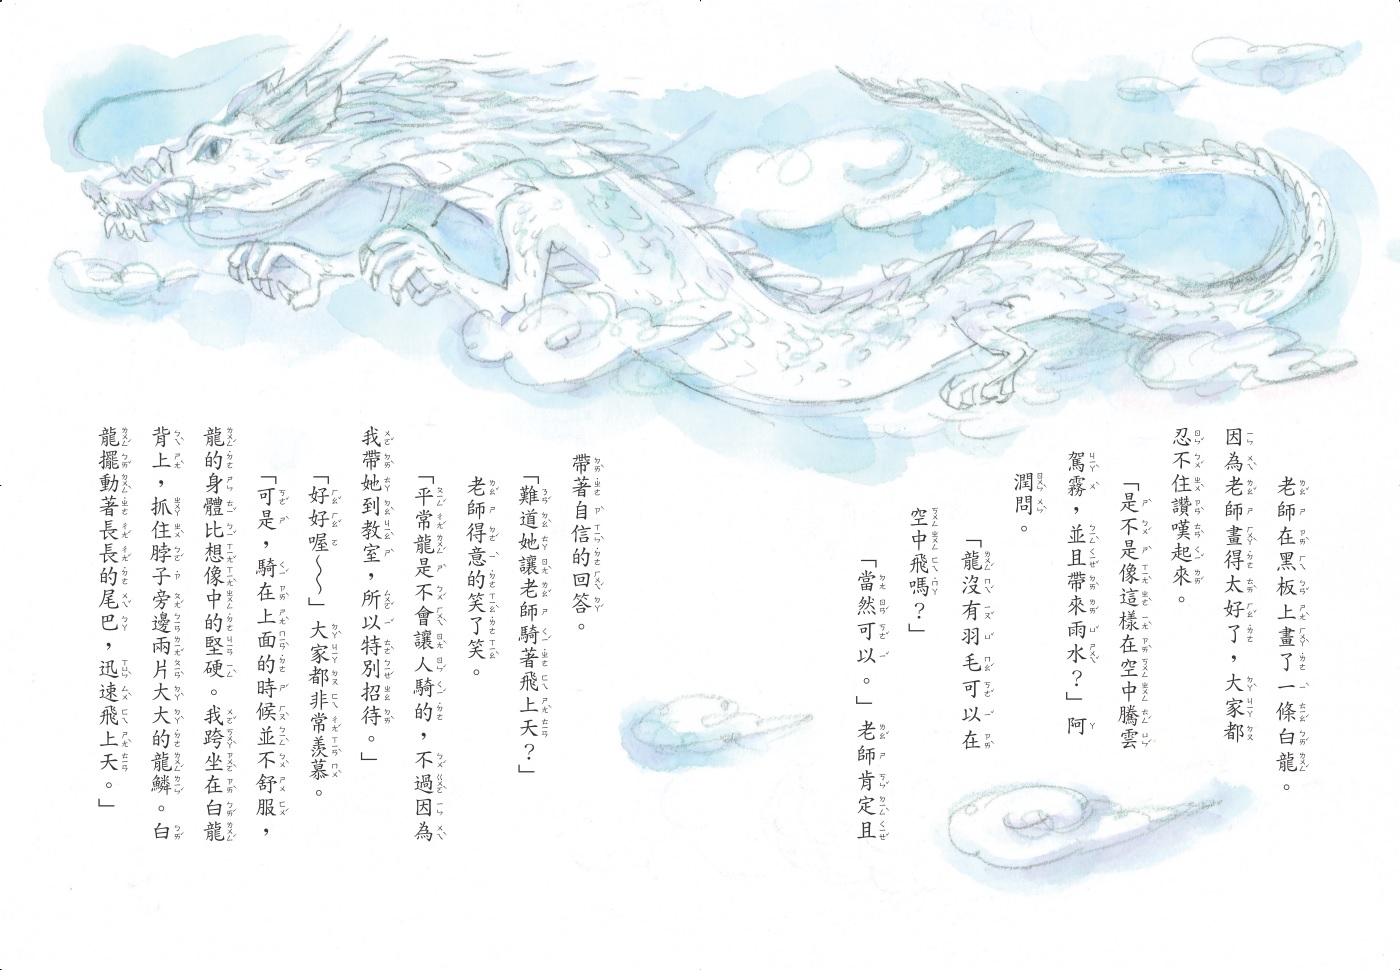 老師在黑板上畫了一條白龍。
因為老師畫得太好了，大家都
忍不住讚嘆起來。
「是不是像這樣在空中騰雲
駕霧，並且帶來雨水？」阿
潤問。
「龍沒有羽毛可以在
空中飛嗎？」
「當然可以。」老師肯定且
帶著自信的回答。
「難道她讓老師騎著飛上天？」
老師得意的笑了笑。
「平常龍是不會讓人騎的，不過因為
我帶她到教室，所以特別招待。」
「好好喔～～」大家都非常羨慕。
「可是，騎在上面的時候並不舒服，
龍的身體比想像中的堅硬。我跨坐在白龍
背上，抓住脖子旁邊兩片大大的龍鱗。白
龍擺動著長長的尾巴，迅速飛上天。」